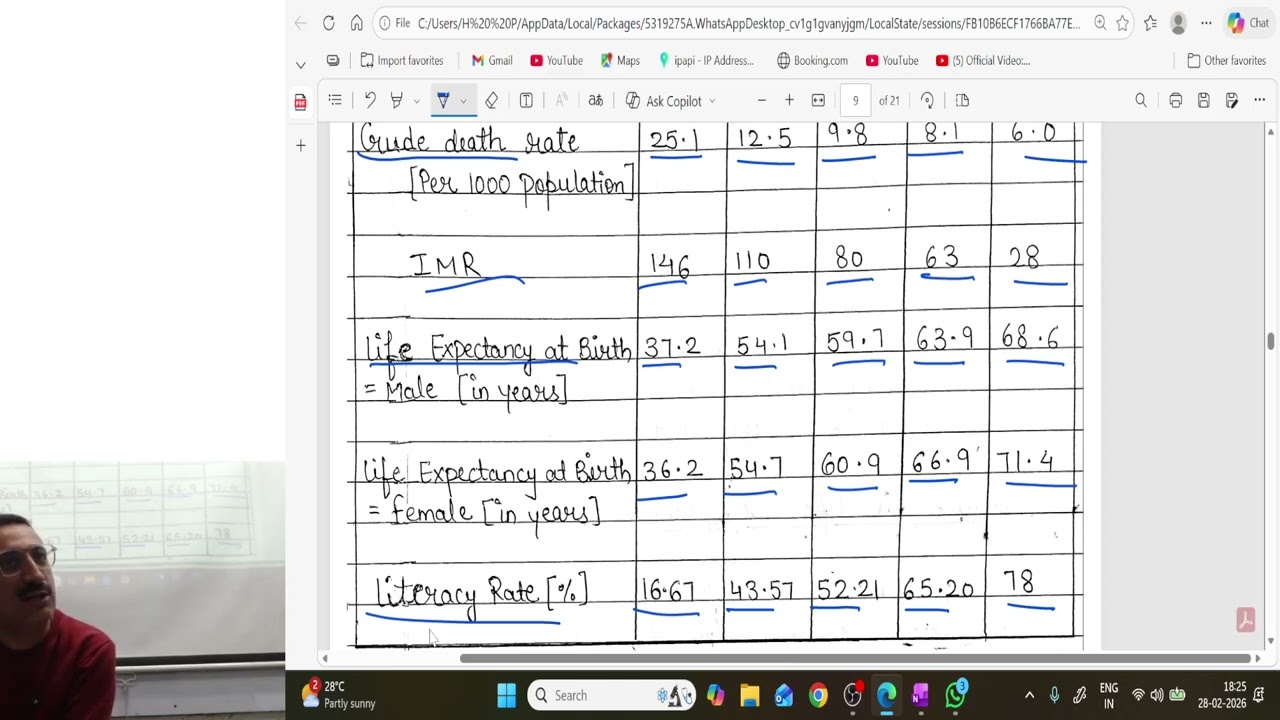 File
C:/Users/H%20%20P/AppData/Local/Packages/5319275A.WhatsAppDesktop_cv1g1gvanyjgm/LocalState/sessions/FB10B6ECF1766BA77E...
Chat
Import favorites
Gmail
YouTube
Maps
ipapi - IP Address...
Booking.com
YouTube
(5) Official Video:...
Other favorites
Ask Copilot
9 of 21
Crude death rate 25.1 12.5 9.8 8.1 6.0
[Per 1000 population]
IMR 146 110 80 63 28
Life Expectancy at Birth 37.2 54.1 59.7 63.9 68.6
= Male [in years]
Life Expectancy at Birth 36.2 54.7 60.9 66.9 71.4
= Female [in years]
Literacy Rate [%] 16.67 43.57 52.21 65.20 78
2
28°C
Partly sunny
Search
3
ENG
IN
18:25
28-02-2026